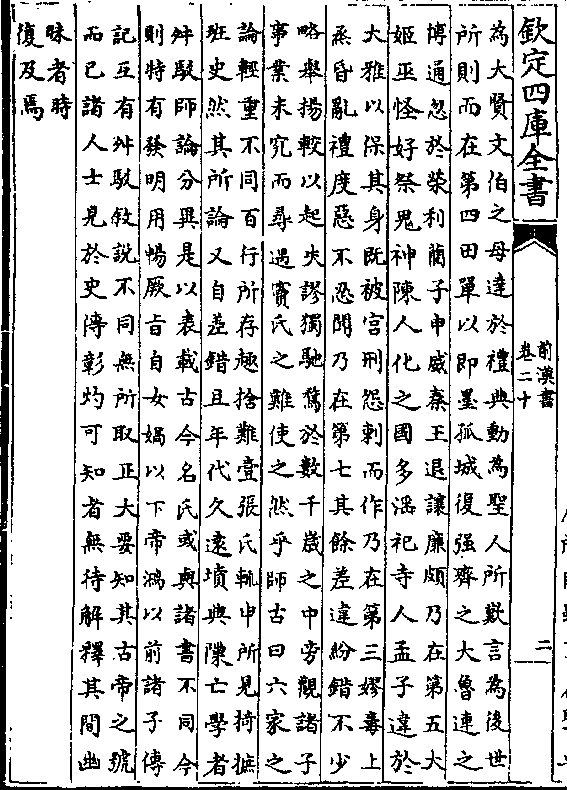 欽定四庫全書
前漢書
卷二十
二
為大賢文伯之母達於禮典動為聖人所歎言為後世
所則而在第四田單以即墨孤城復强齊之大魯連之
博通忽於榮利藺子申威秦王退讓廉頗乃在第五大
姬巫怪好祭鬼神陳人化之國多滛祀寺人孟子違於
大雅以保其身既被宫刑怨刺而作乃在第三嫪毐上
烝昏亂禮度惡不忍聞乃在第七其餘差違紛錯不少
略舉揚較以起失謬獨馳騖於數千歲之中旁觀諸子
事業未究而尋遇竇氏之難使之然乎師古曰六家之
論輕重不同百行所存趣捨難壹張氏輒申所見掎摭
班史然其所論又自差錯且年代久逺墳典隳亡學者
舛駁師論分異是以表載古今名氏或與諸書不同今
則特有發明用暢厥旨自女媧以下帝鴻以前諸子傳
記互有舛駁敘說不同無所取正大要知其古帝之號
而已諸人士見於史傳彰灼可知者無待解釋其間幽
昧者時
復及焉